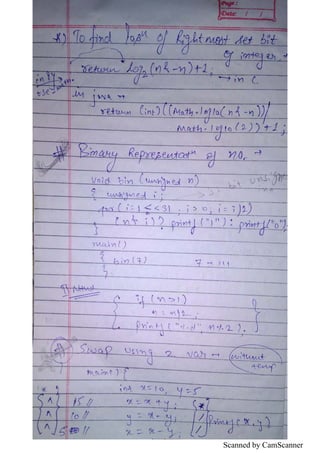 Page:
Date: / /
*) To find posn of Right most set bit
of integer →
return log2(n & -n)+1; → in C
in java →
return (int)((Math.log10(n & -n))/
Math.log10(2))+1;
# Binary Representatn of no. →
void bin (unsigned n)
{ unsigned i;
for (i=1<<31, i>0, i=i/2)
(n & i)? printf("1"): printf("0");
}
main()
{ bin(7)
7 → 111
}
{ if (n>1)
n = n/2;
printf("%d", n%2); }
# Swap using 2 var → without
main() {
int x=10, y=5
15 // x = x+y;
10 // y = x-y;
5 // x = x-y;
printf(x,y)
Scanned by CamScanner